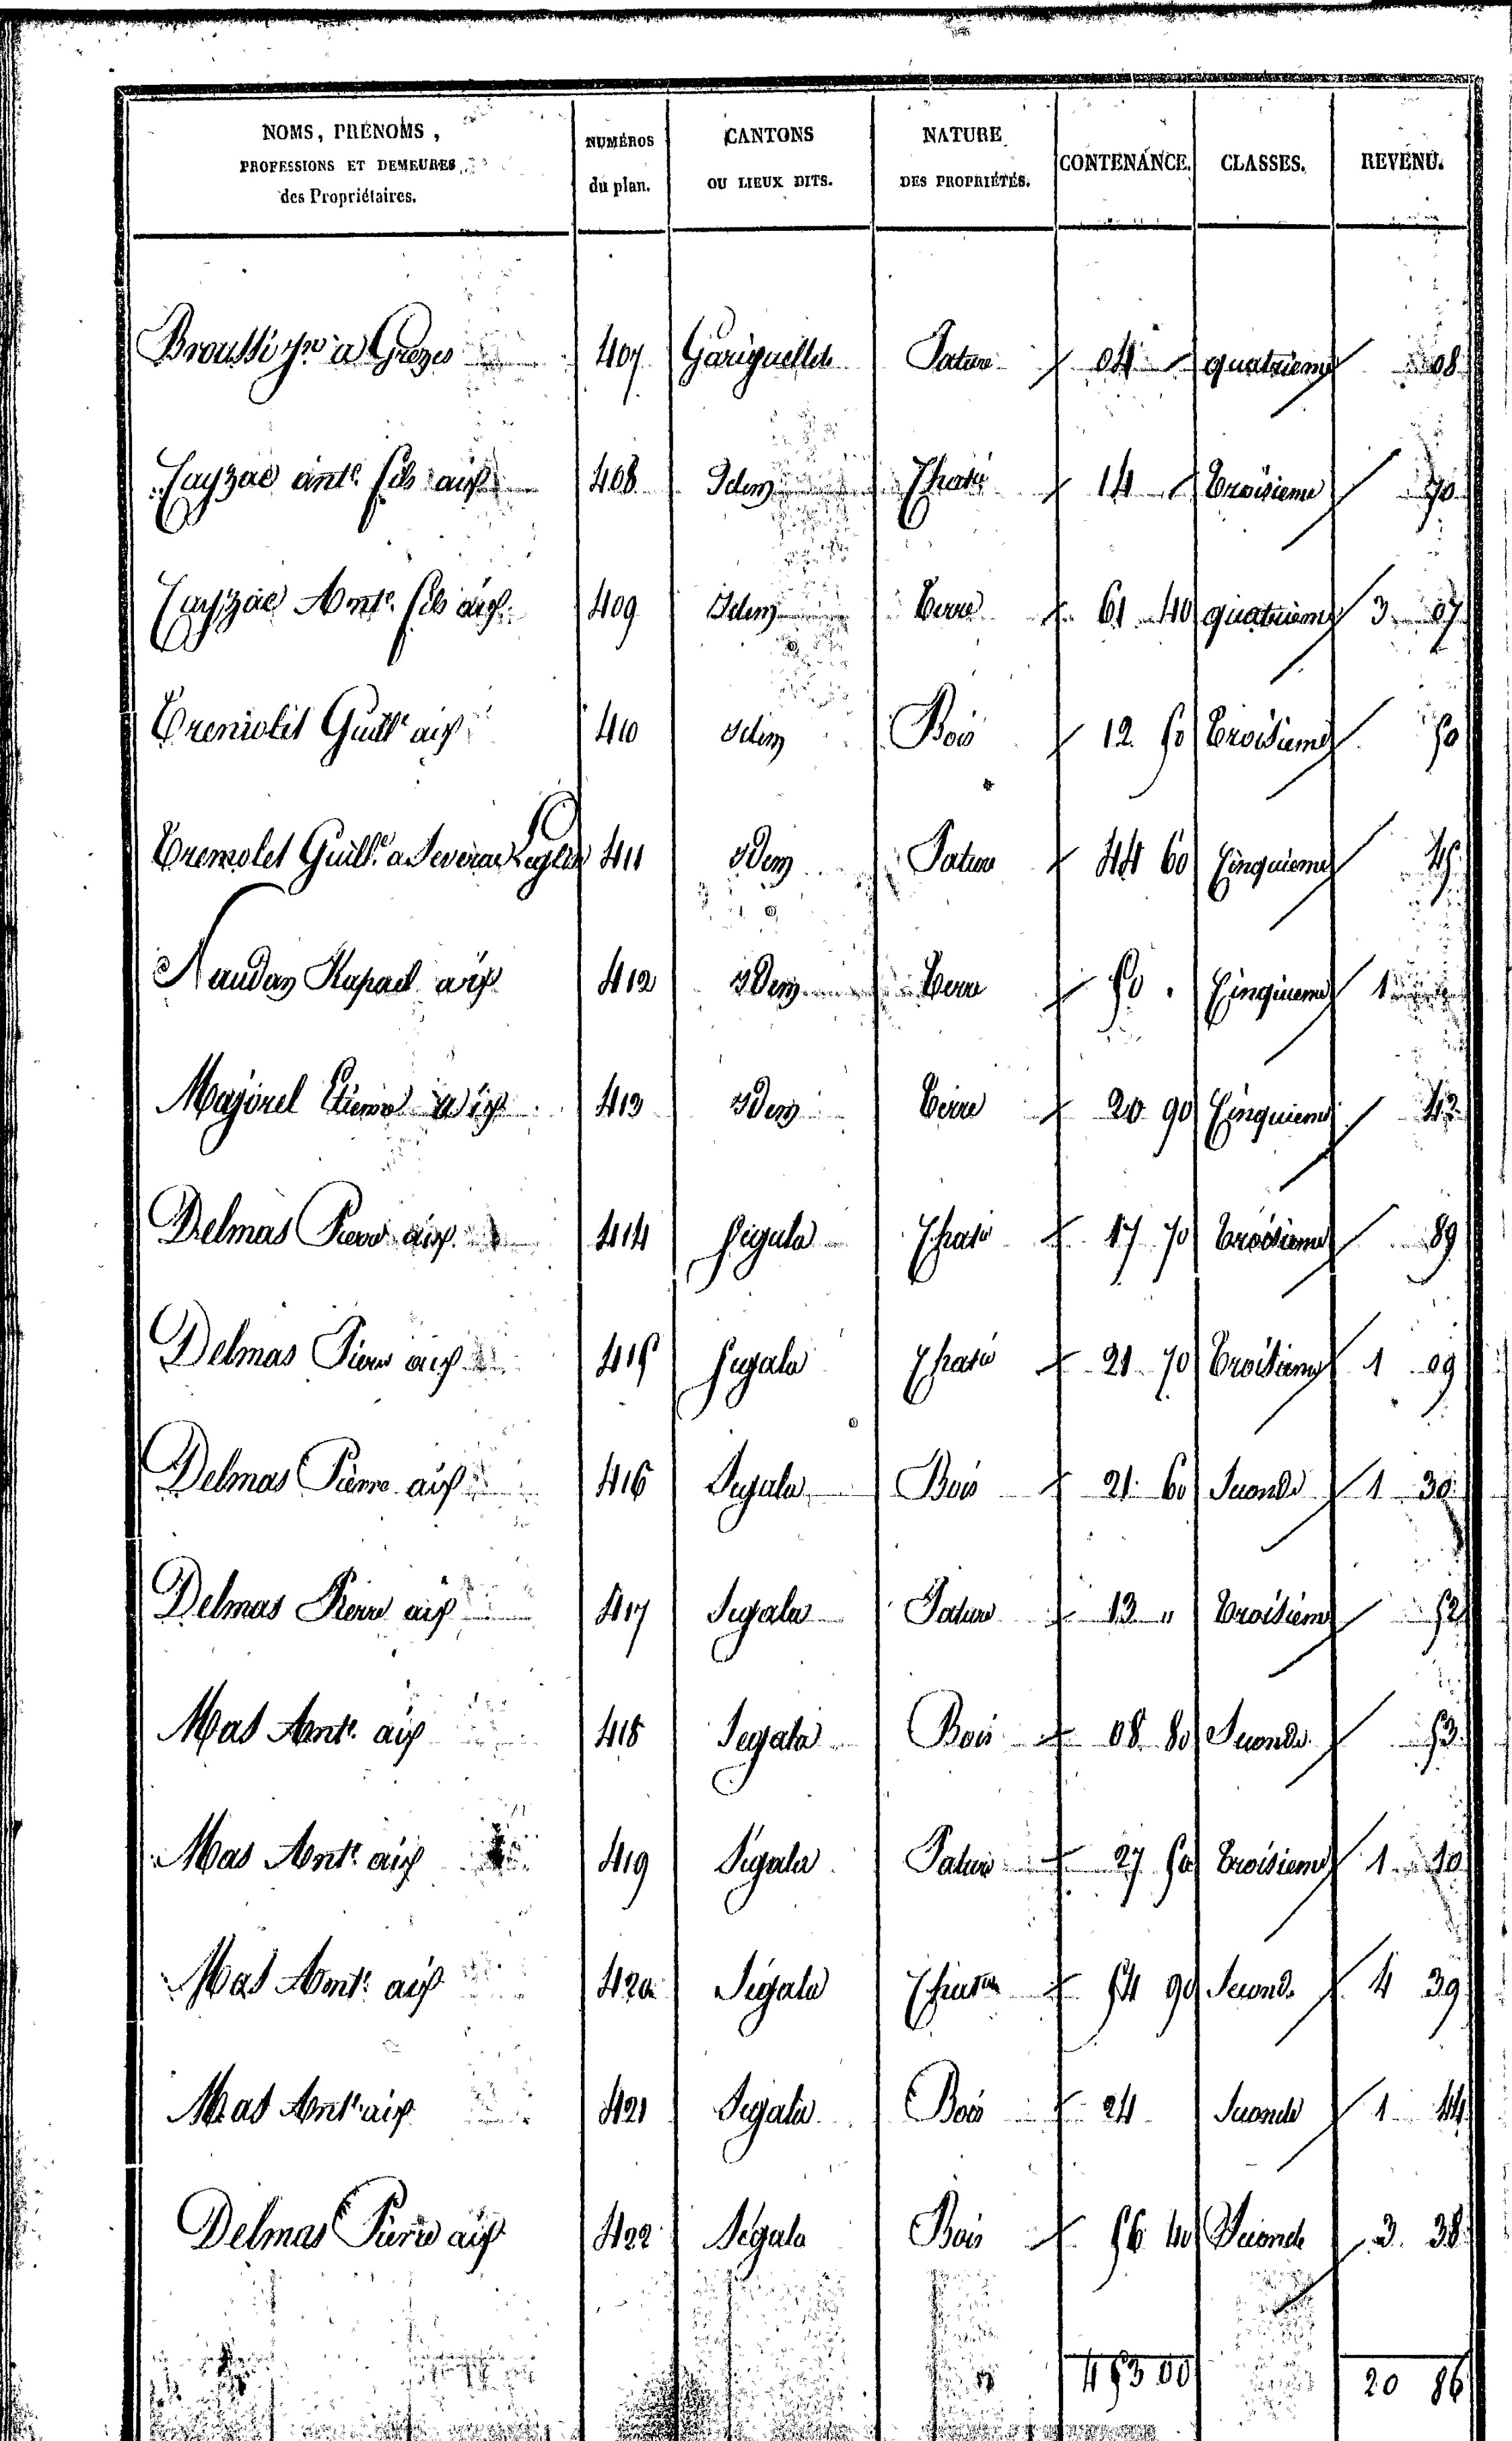 NOMS, PRÉNOMS, NUMÉROS CANTONS NATURE CONTENANCE. CLASSES. REVENU.
PROFESSIONS ET DEMEURES du plan. OU LIEUX DITS. DES PROPRIÉTÉS.
des Propriétaires.
Broussi a Grezes 407 Gariguettes Pature 04 quatrieme 08
Cayzac ante. fils aux 408 Idem Chatie 14 Troisieme 70
Cayzac Ante. fils aux 409 Idem Terre 61 40 quatrieme 3 07
Tremolet Guille aux 410 idem Bois 12 50 Troisieme 50
Tremolet Guille. a Severac Leglise 411 idem Pature 44 60 Cinquieme 45
Naudan aux 412 idem Terre 50 . Cinquieme 1
Majorel Etienne aux 413 idem Terre 20 90 Cinquieme 42
Delmas Pierre aux 414 Segala Chatie 17 70 Troisieme 89
Delmas Pierre aux 415 Segala Chatie 21 70 Troisieme 1 09
Delmas Pierre aux 416 Segala Bois 21 60 Seconde 1 30
Delmas Pierre aux 417 Segala Pature 13 " Troisieme 52
Mas Ante. aux 418 Segala Bois 08 80 Seconde 53
Mas Ante. aux 419 Segala Pature 27 50 Troisieme 1 10
Mas Ante. aux 420 Ségala 54 90 Seconde 4 39
Mas Ante. aux 421 Segala Bois 24 Seconde 1 44
Delmas Pierre aux 422 Ségala Bois 56 40 Seconde 3 38
4 53 00 20 86